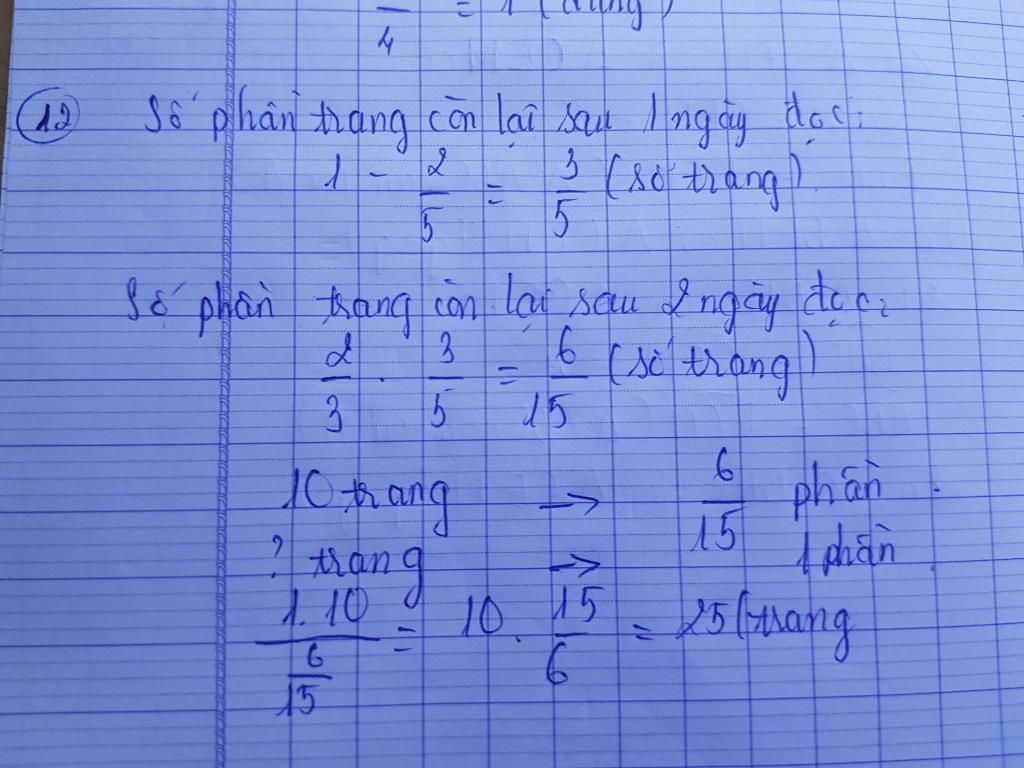 — = 1 (đúng)
4
12 Số phần trang còn lại sau 1 ngày đọc:
1 - 2/5 = 3/5 (số trang)
Số phần trang còn lại sau 2 ngày đọc:
2/3 . 3/5 = 6/15 (số trang)
10 trang → 6/15 phần
? trang → 1 phần
1.10/(6/15) = 10 . 15/6 = 25 (trang